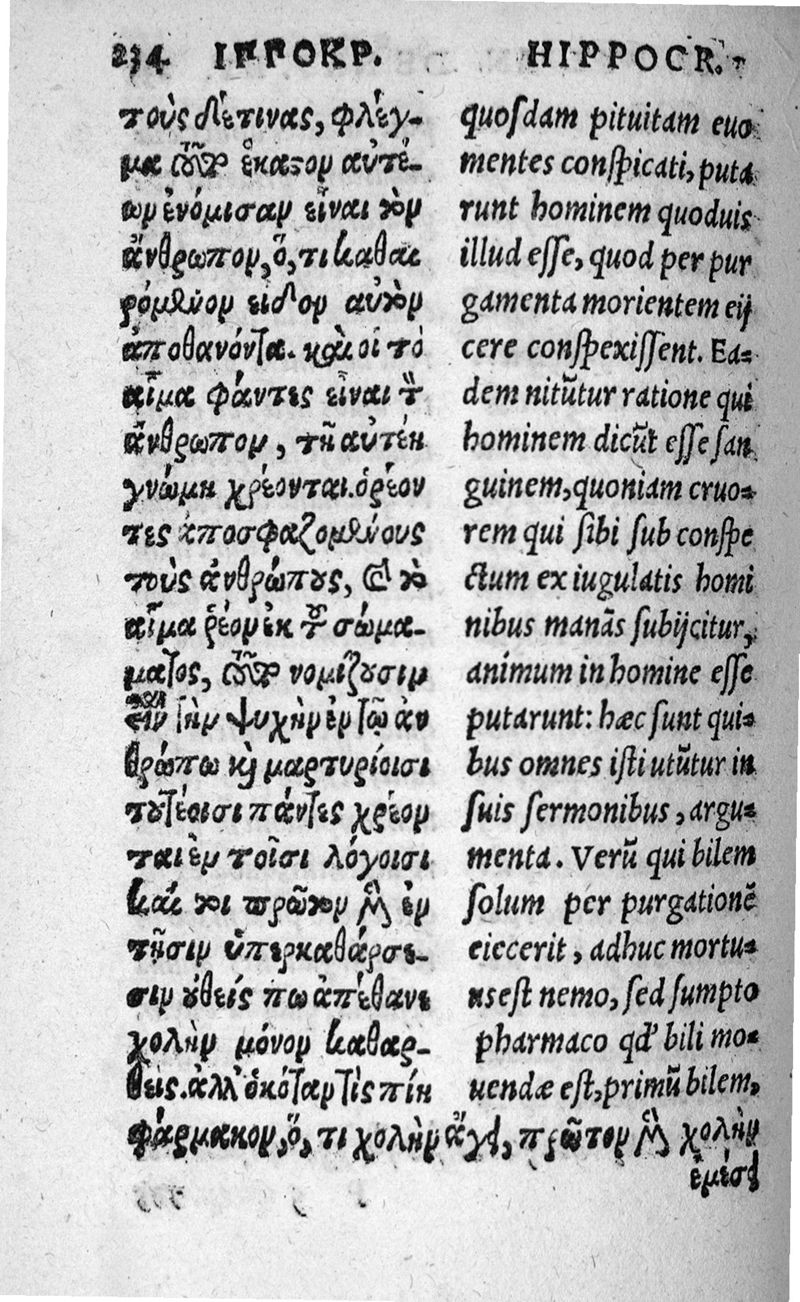 234. ΙΠΠΟΚΡ. HIPPOCR.
τοὺς δέτινας, φλέγ-
μα τοῦτο ἕκαστον αὐτέ-
ων ἐνόμισαν εἶναι τὸν
ἄνθρωπον, ὅ, τι καθαι
ρόμενον εἶδον αὐτὸν
ἀποθανόντα. καὶ οἱ τὸ
αἷμα φάντες εἶναι τ̀
ἄνθρωπον, τῇ αὐτέῃ
γνώμῃ χρέονται. ὁρέον
τες ἀποσφαζομένους
τοὺς ἀνθρώπους, καὶ τὸ
αἷμα ῥέον ἐκ τοῦ σώμα-
ματος, τοῦτο νομίζουσιν
εἶναι τὴν ψυχὴν ἐν τῷ ἀν
θρώπω καὶ μαρτυρίοισι
τουτέοισι πάντες χρέον
ται ἐν τοῖσι λόγοισι
καί τοι πρῶτον μὲν ἐν
τῇσιν ὑπερκαθάρσε-
σιν οὐθείς πω ἀπέθανε
χολὴν μόνον καθαρ-
θείς. ἀλλ' ὁκόταν τὶς πίῃ
φάρμακον, ὅ, τι χολὴν ἄγει, πρῶτον μὲν χολὴν
ἐμέσει
quoſdam pituitam euo
mentes conſpicati, puta
runt hominem quoduis
illud eſſe, quod per pur
gamenta morientem eij
cere conſpexiſſent. Ea-
dem nitūtur ratione qui
hominem dicūt eſſe ſan
guinem, quoniam cruo-
rem qui ſibi ſub conſpe
ctum ex iugulatis homi
nibus manās ſubijcitur,
animum in homine eſſe
putarunt: hæc ſunt qui-
bus omnes iſti utūtur in
ſuis ſermonibus, argu-
menta. Verū qui bilem
ſolum per purgationē
eiecerit, adhuc mortu-
us eſt nemo, ſed ſumpto
pharmaco qd' bili mo-
uendæ eſt, primū bilem,